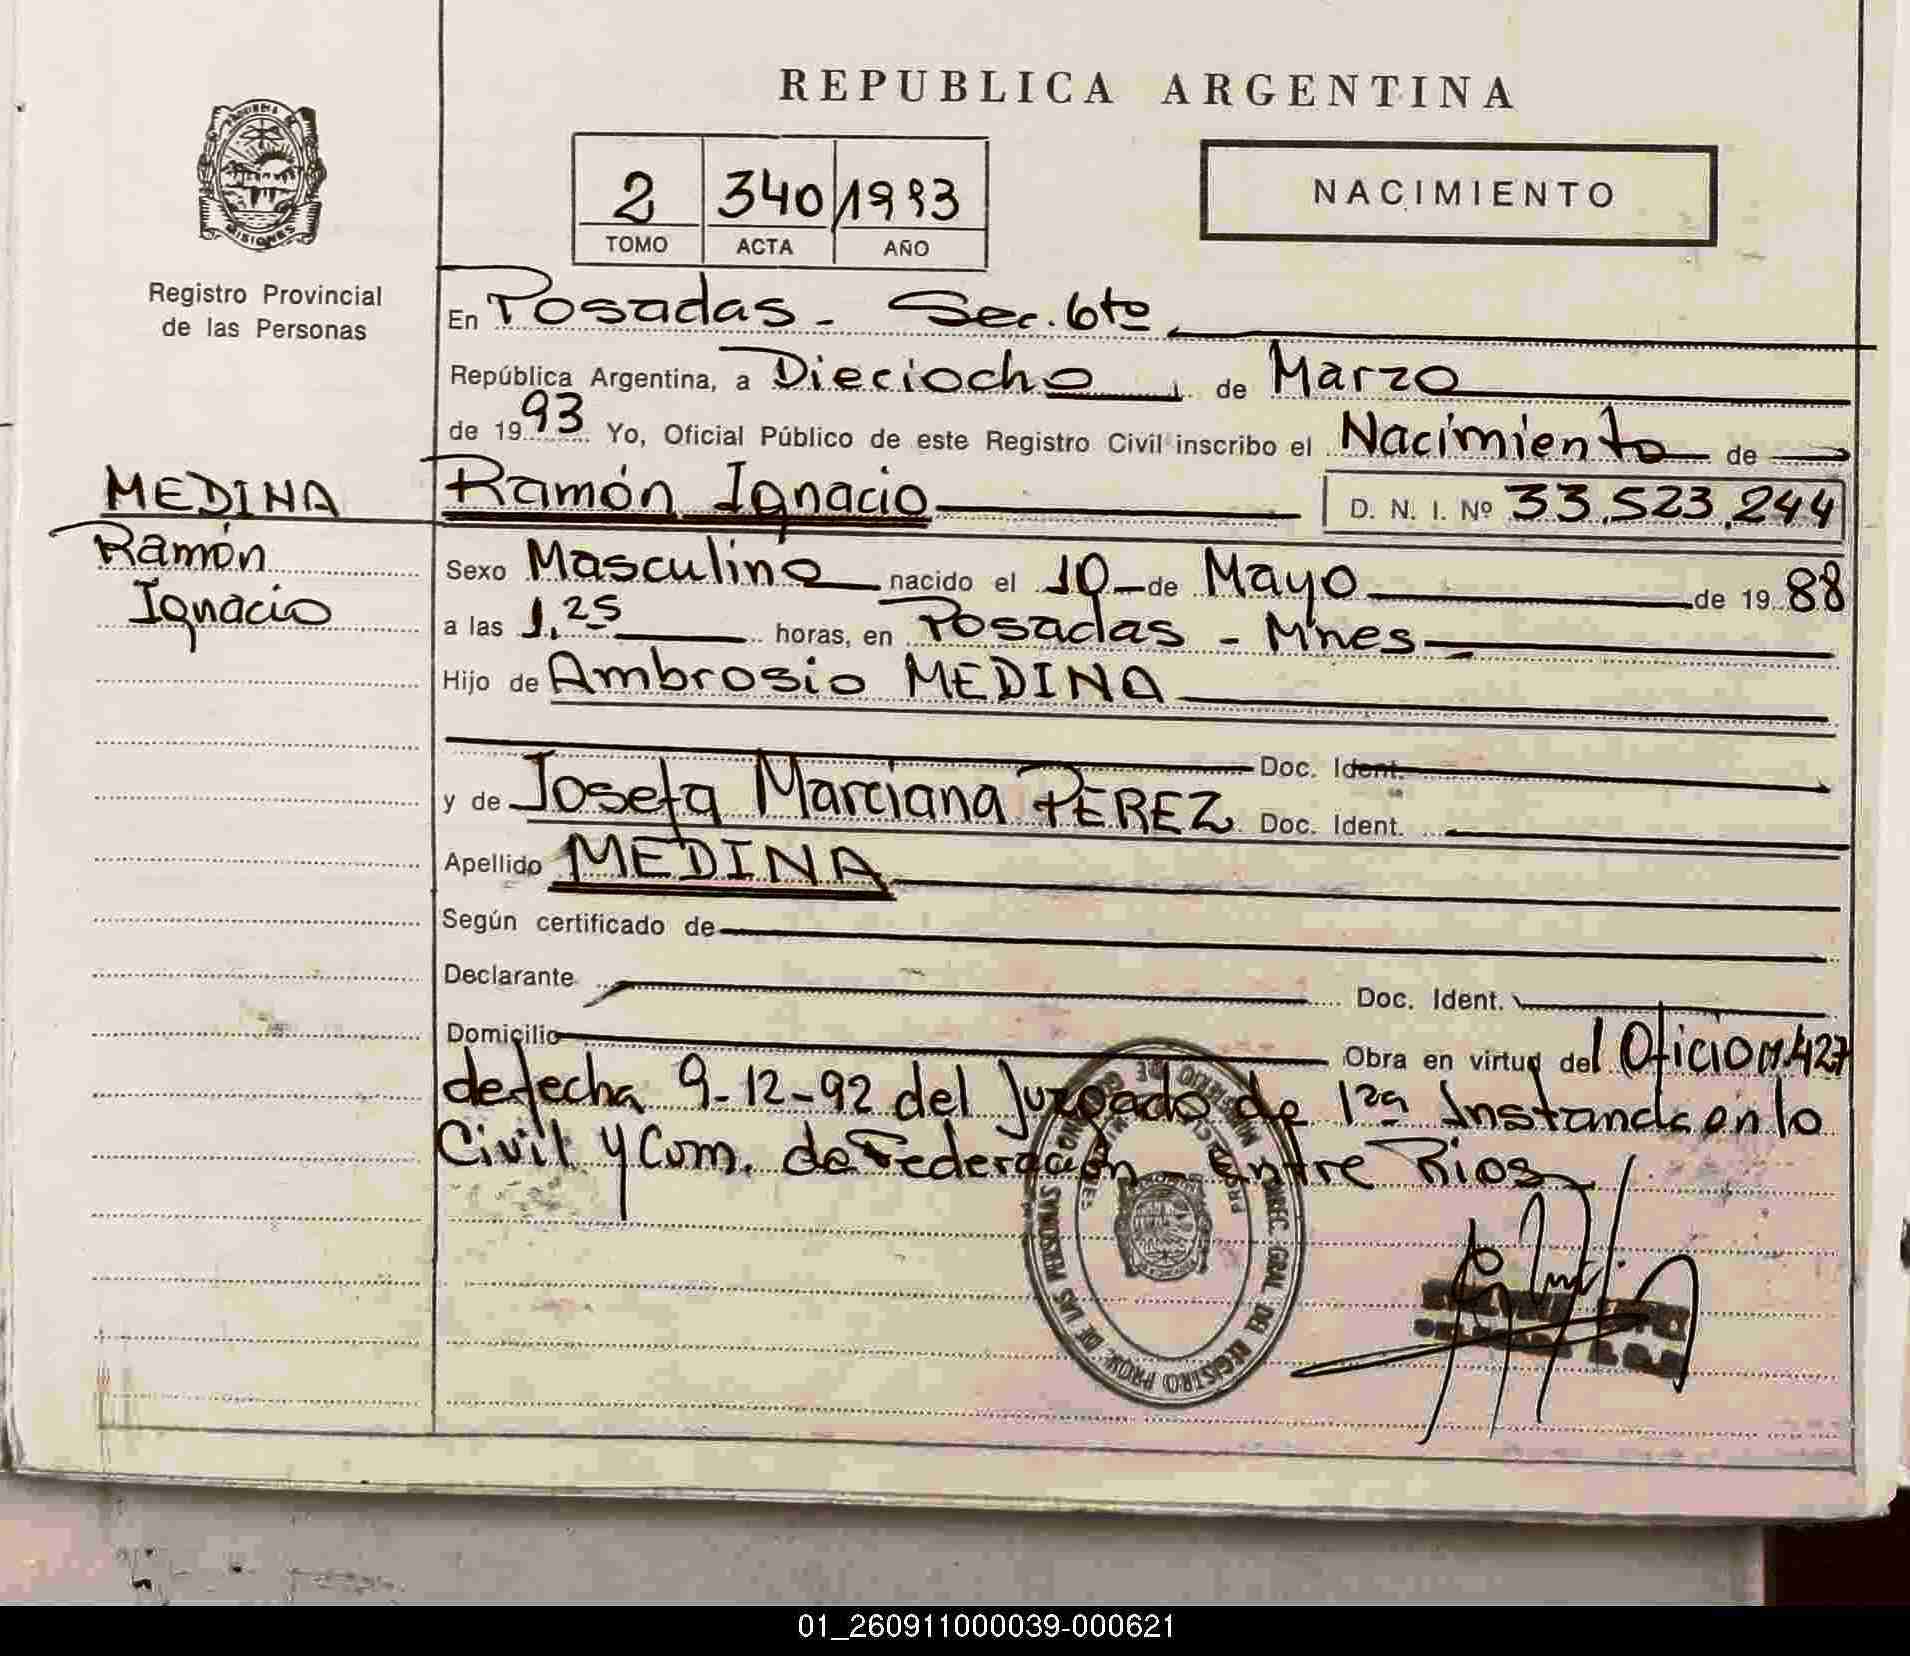 REPUBLICA ARGENTINA
2 340 1993
TOMO ACTA AÑO
NACIMIENTO
MISIONES
Registro Provincial
de las Personas
En Posadas - Sec. 6ta
República Argentina, a Dieciocho de Marzo
de 1993 Yo, Oficial Público de este Registro Civil inscribo el Nacimiento de
MEDINA
Ramón
Ignacio
Ramón Ignacio D. N. I. Nº 33.523.244
Sexo Masculino nacido el 10 de Mayo de 1988
a las 1,25 horas, en Posadas - Mnes
Hijo de Ambrosio MEDINA
Doc. Ident.
y de Josefa Marciana PEREZ Doc. Ident.
Apellido MEDINA
Según certificado de
Declarante Doc. Ident.
Domicilio Obra en virtud del Oficio n.427
de fecha 9-12-92 del Juzgado de 1ra Instancia en lo
Civil y Com. de Federación - Entre Rios
MINISTERIO DE GOBIERNO
DIREC. GRAL. DEL REGISTRO PROV. DE LAS PERSONAS
01_260911000039-000621